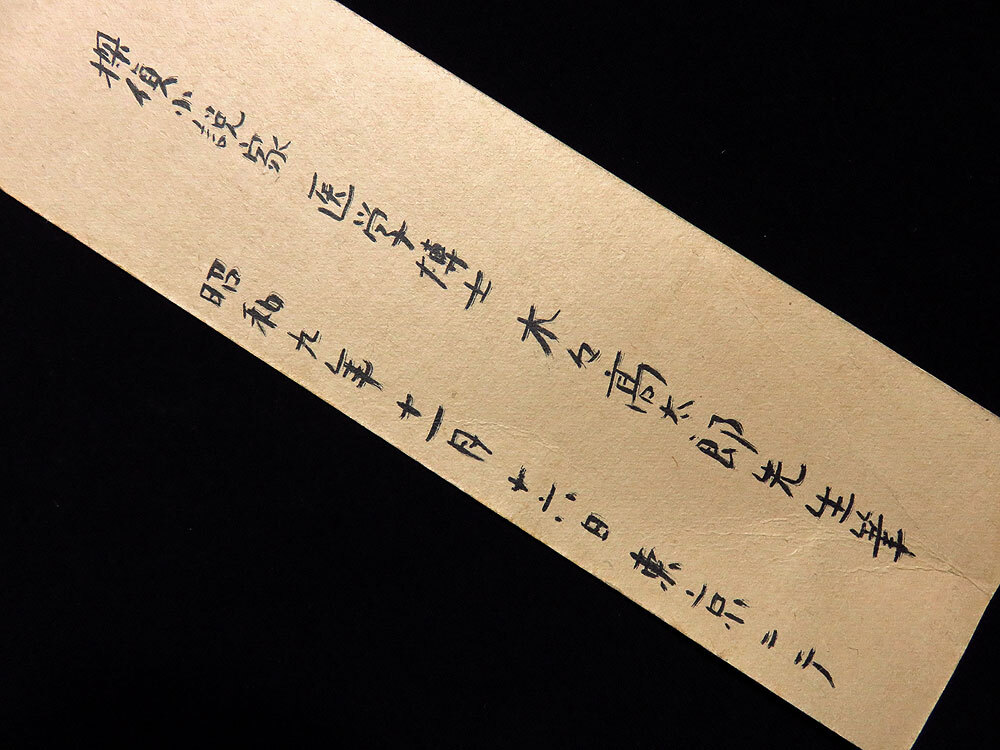 探偵小説家 医学博士 木々高太郎先生筆
昭和九年十一月十六日 東京ニテ